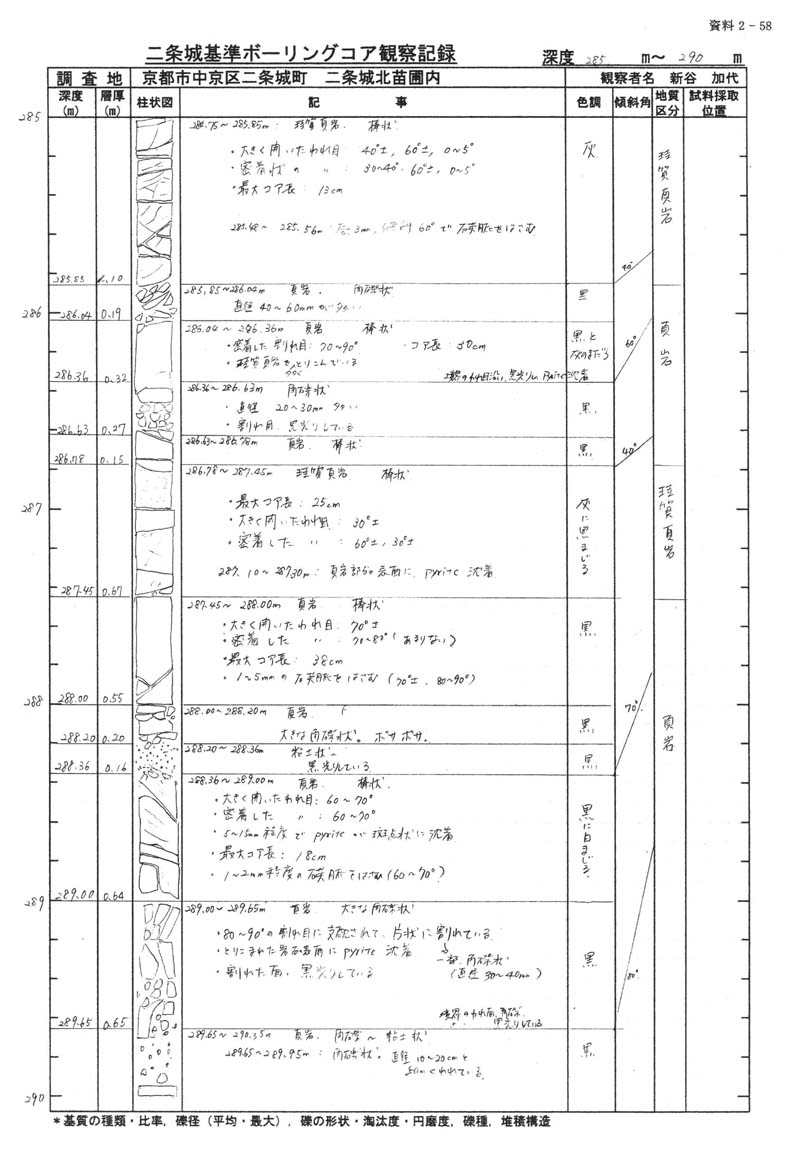 資料 2 - 58
二条城基準ボーリングコア観察記録 深度 285 m～ 290 m
調査地 京都市中京区二条城町 二条城北苗圃内 観察者名 新谷 加代
深度(m) 層厚(m) 柱状図 記事 色調 傾斜角 地質区分 試料採取位置
285
284.75～285.85m 珪質頁岩 棒状
・大きく開いたわれ目 40°±, 60°±, 0～5°
・密着状の 〃 : 30～40° 60°±, 0～5°
・最大コア長 : 13cm
285.48～285.56m 60°で石英脈をはさむ
灰
珪質頁岩
40°
285.85 1.10
285.85～286.04m 頁岩. 角礫状
直径40～60mmが多い
黒
286
286.04 0.19
286.04～286.36m 頁岩 棒状
・密着した割れ目: 70～90° ・コア長: 30cm
・珪質頁岩をとりこんでいる
黒と灰のまだら
60°
頁岩
286.36 0.32
286.36～286.63m 角礫状
・直径 20～30mm 多い
・割れ目 黒光りしている
黒
286.63 0.27
286.63～286.78m 頁岩 棒状
黒
40°
286.78 0.15
286.78～287.45m 珪質頁岩 棒状
・最大コア長: 25cm
・大きく開いたわれ目: 30°±
・密着した 〃 : 60°±, 30°±
287.10～287.30m : 頁岩部分の表面に. pyrite 沈着
灰に黒まじる
珪質頁岩
287
287.45 0.67
287.45～288.00m 頁岩 棒状
・大きく開いたわれ目: 70°±
・密着した 〃 : 70～80° (あまりない)
・最大コア長: 38cm
・1～5mmの石英脈をはさむ (70°±. 80～90°)
黒
288
288.00 0.55
288.00～288.20m 頁岩
大きな角礫状。ボサボサ.
黒
70°
頁岩
288.20 0.20
288.20～288.36m 粘土状～
黒光りしている
黒
288.36 0.16
288.36～289.00m 頁岩 棒状
・大きく開いたわれ目: 60～70°
・密着した 〃 : 60～70°
・5～15mm程度で pyrite が斑点状に沈着
・最大コア長: 18cm
・1～2mm程度の石英脈をはさむ (60～70°)
黒に白まじる
289
289.00 0.64
289.00～289.65m 頁岩 大きな角礫状
・80～90°の割れ目に支配されて、片状に割れている
・とりこまれた岩石表面に pyrite 沈着
一部、角礫状
(直径30～40mm)
・割れた面、黒光りしている
黒
80°
289.65 0.65
289.65～290.35m 頁岩 角礫～粘土状
289.65～289.95m : 角礫状。直径10～20cmと
細かくわれている
黒
290
＊基質の種類・比率，礫径（平均・最大），礫の形状・淘汰度・円磨度，礫種，堆積構造